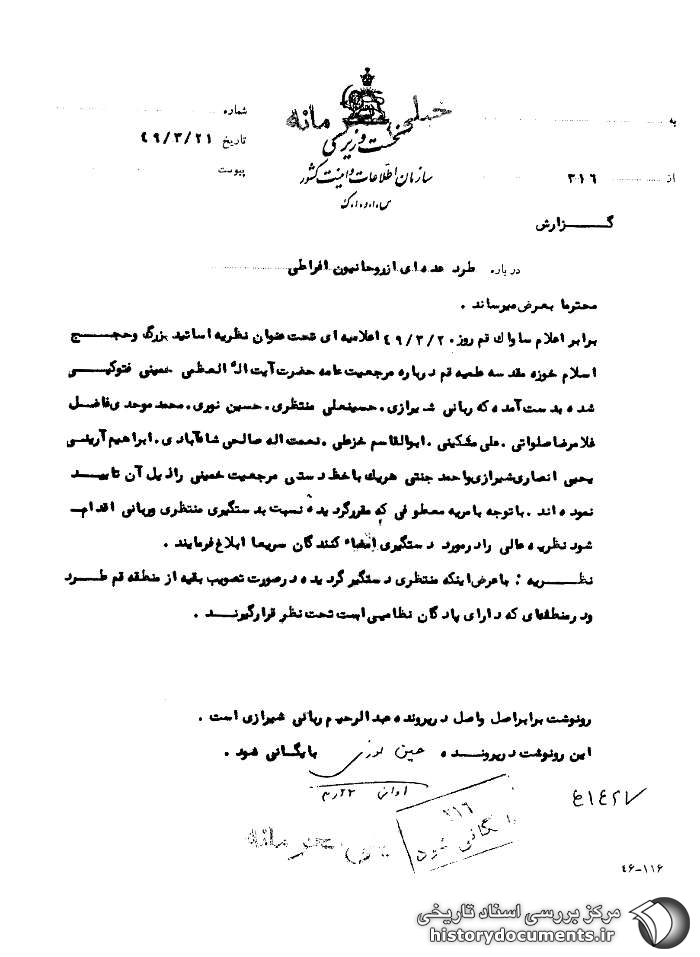 خیلی محرمانه
نخست وزیری
سازمان اطلاعات و امنیت کشور
س.ا.و.ا.ک
به
از ۳۱۶
شماره
تاریخ ۴۹/۳/۲۱
پیوست
گـــزارش
درباره طرد عده ای از روحانیون افراطی
محترما بعرض میرساند .
برابر اعلام ساواك قم روز ۴۹/۳/۲۰ اعلامیه ای تحت عنوان نظریه اساتید بزرگ وحجج
اسلام حوزه مقدسه علمیه قم درباره مرجعیت عامه حضرت آیت اله العظمی خمینی فتوکپی
شده بدست آمده که ربانی شیرازی . حسینعلی منتظری . حسین نوری . محمد موحدی فاضل
غلامرضا صلواتی . علی مشکینی . ابوالقاسم خزعلی . نعمت اله صالحی . ابراهیم امینی
یحیی انصاری شیرازی واحمد جنتی هریك باخط دستی مرجعیت خمینی را ذیل آن تایید
نموده اند . باتوجه بامریه معطوفی که مقررگردیده نسبت بدستگیری منتظری وربانی اقدام
شود نظریه عالی را درمورد دستگیری امضاء کنندگان سریعا ابلاغ فرمایند .
نظـــریه : باعرض اینکه منتظری دستگیر گردیده درصورت تصویب بقیه از منطقه قم طرد
ودرمنطقه‌ای که دارای پادگان نظامی است تحت نظر قرارگیرنـد .
رونوشت برابراصل واصل درپرونده عبدالرحیم ربانی شیرازی است .
این رونوشت درپرونـــده حسین نوری بایگانی شود .
۳۱۶
بایگانی شود
خیلی محرمانه
۴۶-۱۱۶
مرکز بررسی اسناد تاریخی
historydocuments.ir